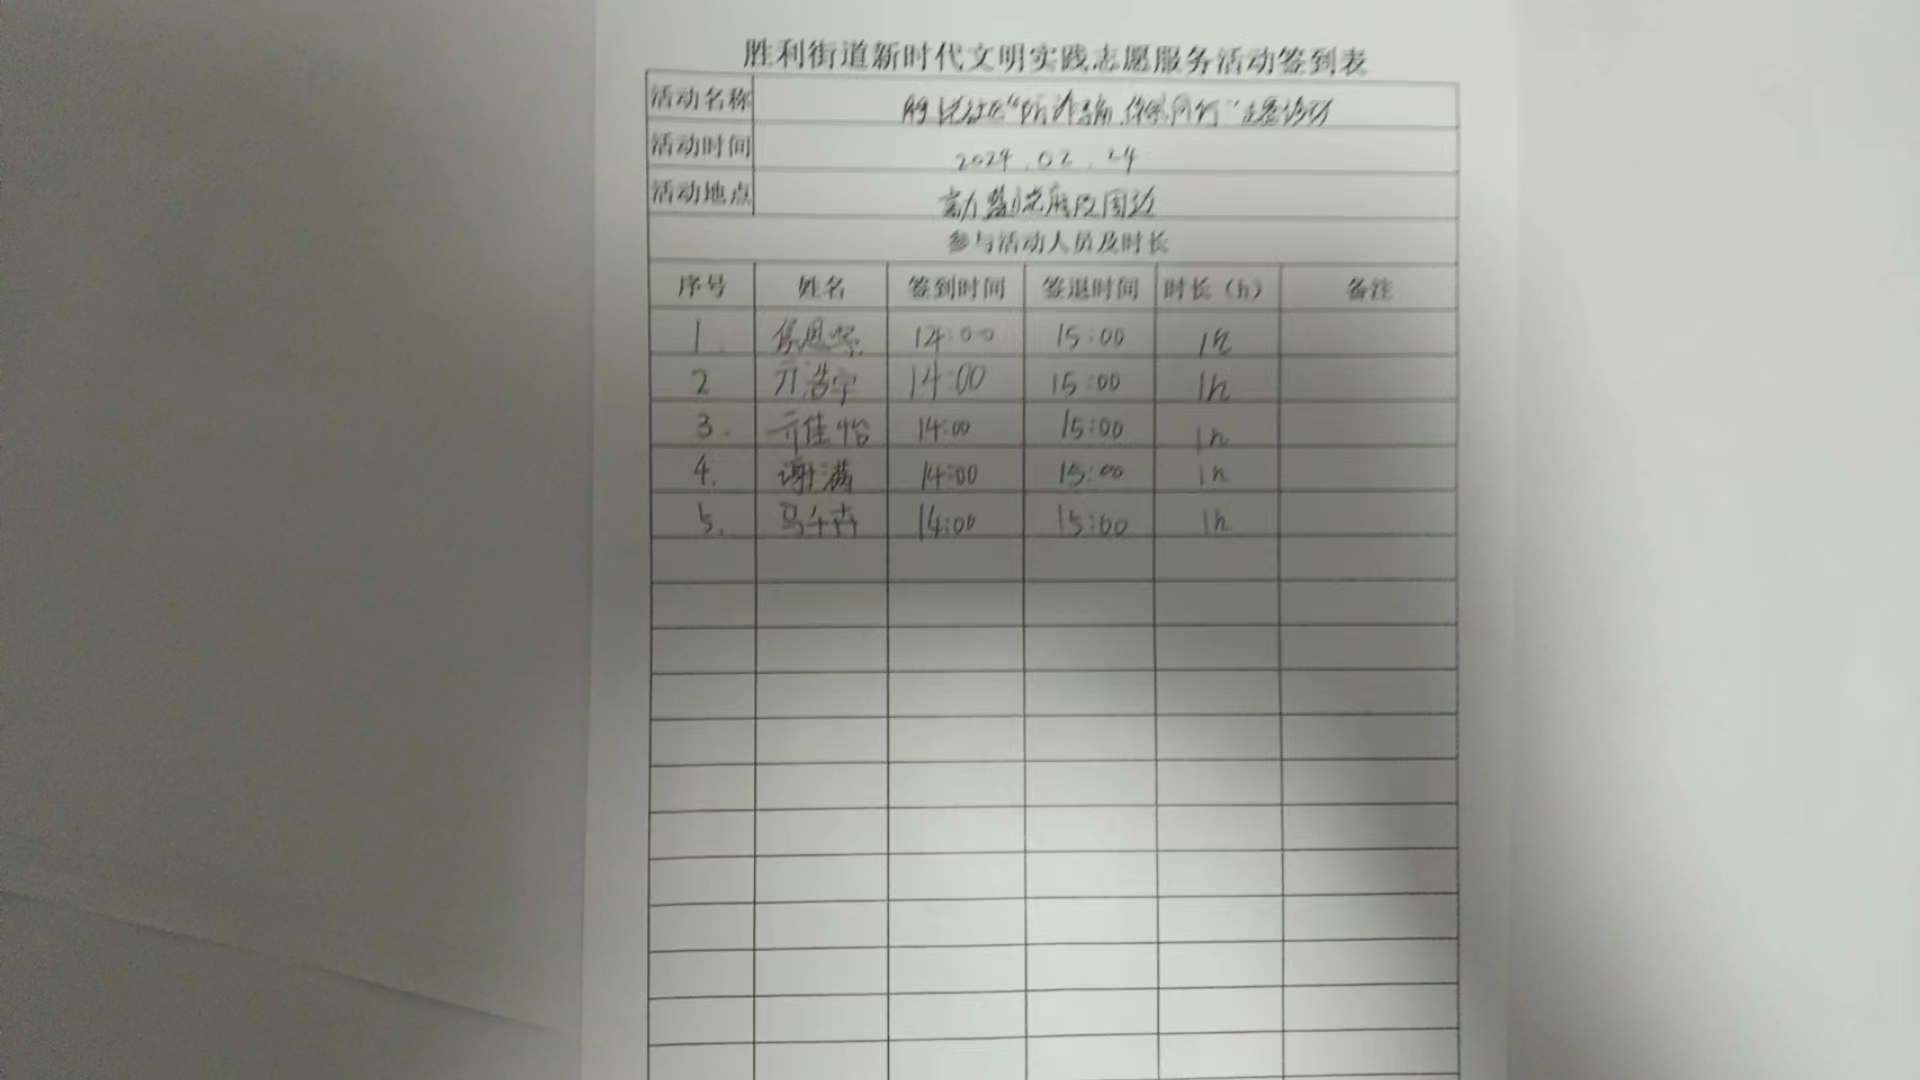 胜利街道新时代文明实践志愿服务活动签到表
活动名称 "防诈骗
活动时间 2024.02.24
活动地点 府及周边
参与活动人员及时长
序号 姓名 签到时间 签退时间 时长（h） 备注
1. 14:00 15:00 1h
2 亓浩宇 14:00 15:00 1h
3. 亓佳怡 14:00 15:00 1h
4. 谢满 14:00 15:00 1h
5. 马千卉 14:00 15:00 1h